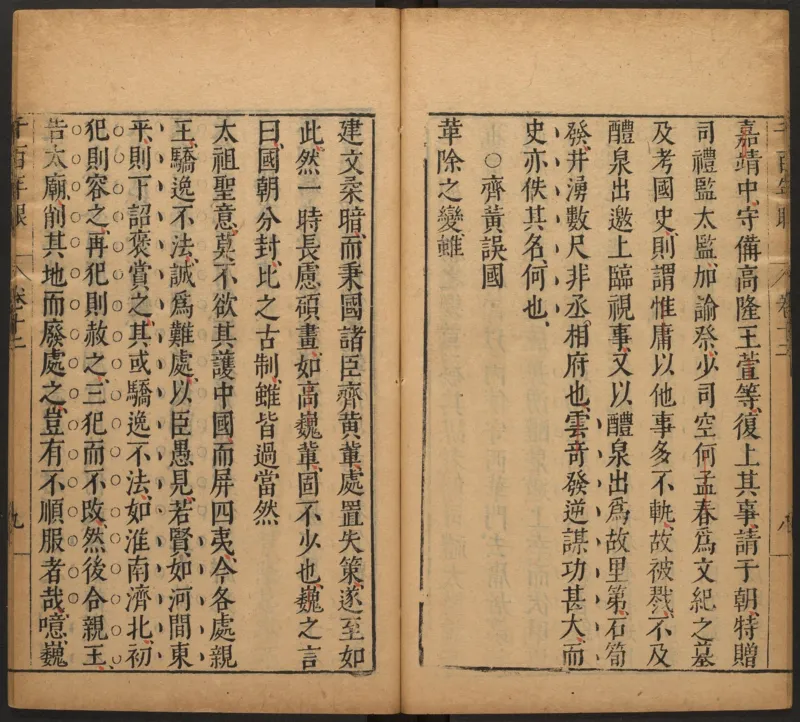 嘉靖中、守備高隆王萱等、復上其事、請于朝、特贈
司禮監太監、加諭祭、少司空何孟春爲文紀之墓
及考國史、則謂惟庸以他事多不軌、故被戮、不及
醴泉出邀上臨視事、又以醴泉出爲故里第、石筍
發、井湧數尺、非丞相府也、雲奇發逆謀功甚大、而
史亦佚其名、何也、
○齊黃誤國
革除之變、雖
建文柔暗、而秉國諸臣齊黃輩、處置失策、遂至如
此、然一時長慮碩畫、如高巍輩、固不少也、巍之言
曰、國朝分封、比之古制、雖皆過當、然
太祖聖意、莫不欲其護中國而屏四夷、今各處親
王、驕逸不法、誠爲難處、以臣愚見、若賢如河間東
平、則下詔褒賞之、其或驕逸不法、如淮南濟北、初
犯則容之、再犯則赦之、三犯而不改、然後合親王、
告太廟、削其地而廢處之、豈有不順服者哉、噫、巍
卷十二
九